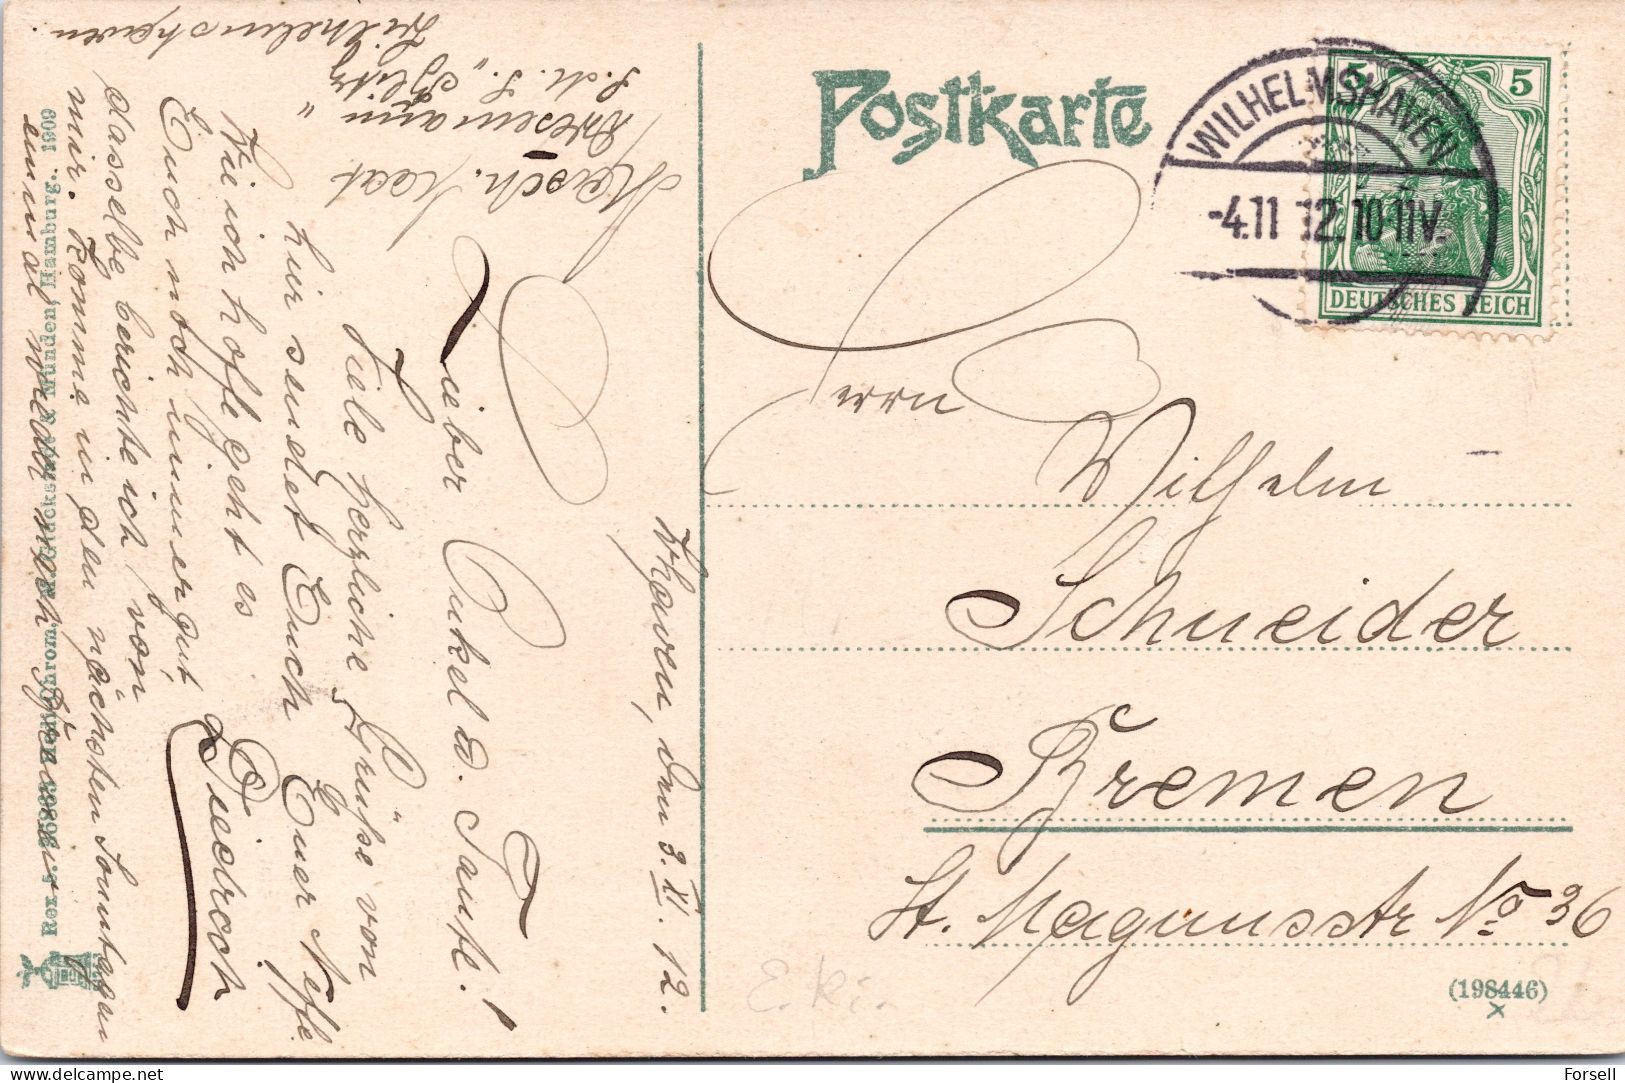 Postkarte
WILHELMSHAVEN
-4.11 12. 10-11V.
5 5
DEUTSCHES REICH
Herrn
Wilhelm
Schneider
Bremen
St. Magnusstr No 36
(198446)
E. Ki.
W'haven, den 3. XI. 12.
Lieber Onkel u. Tante!
Viele herzliche Grüße von
hier sendet Euch Euer Neffe
Diedrich
Wie ich hoffe geht es
Euch noch immer gut,
dasselbe berichte ich von
mir. Komme in den nächsten Sonntagen
einmal wieder nach
Masch. Maat
Wesemann
S.M.S. „Blitz"
Wilhelmshaven.
M. Glückstadt & Münden, Hamburg. 1909
forsell
delcampe.net